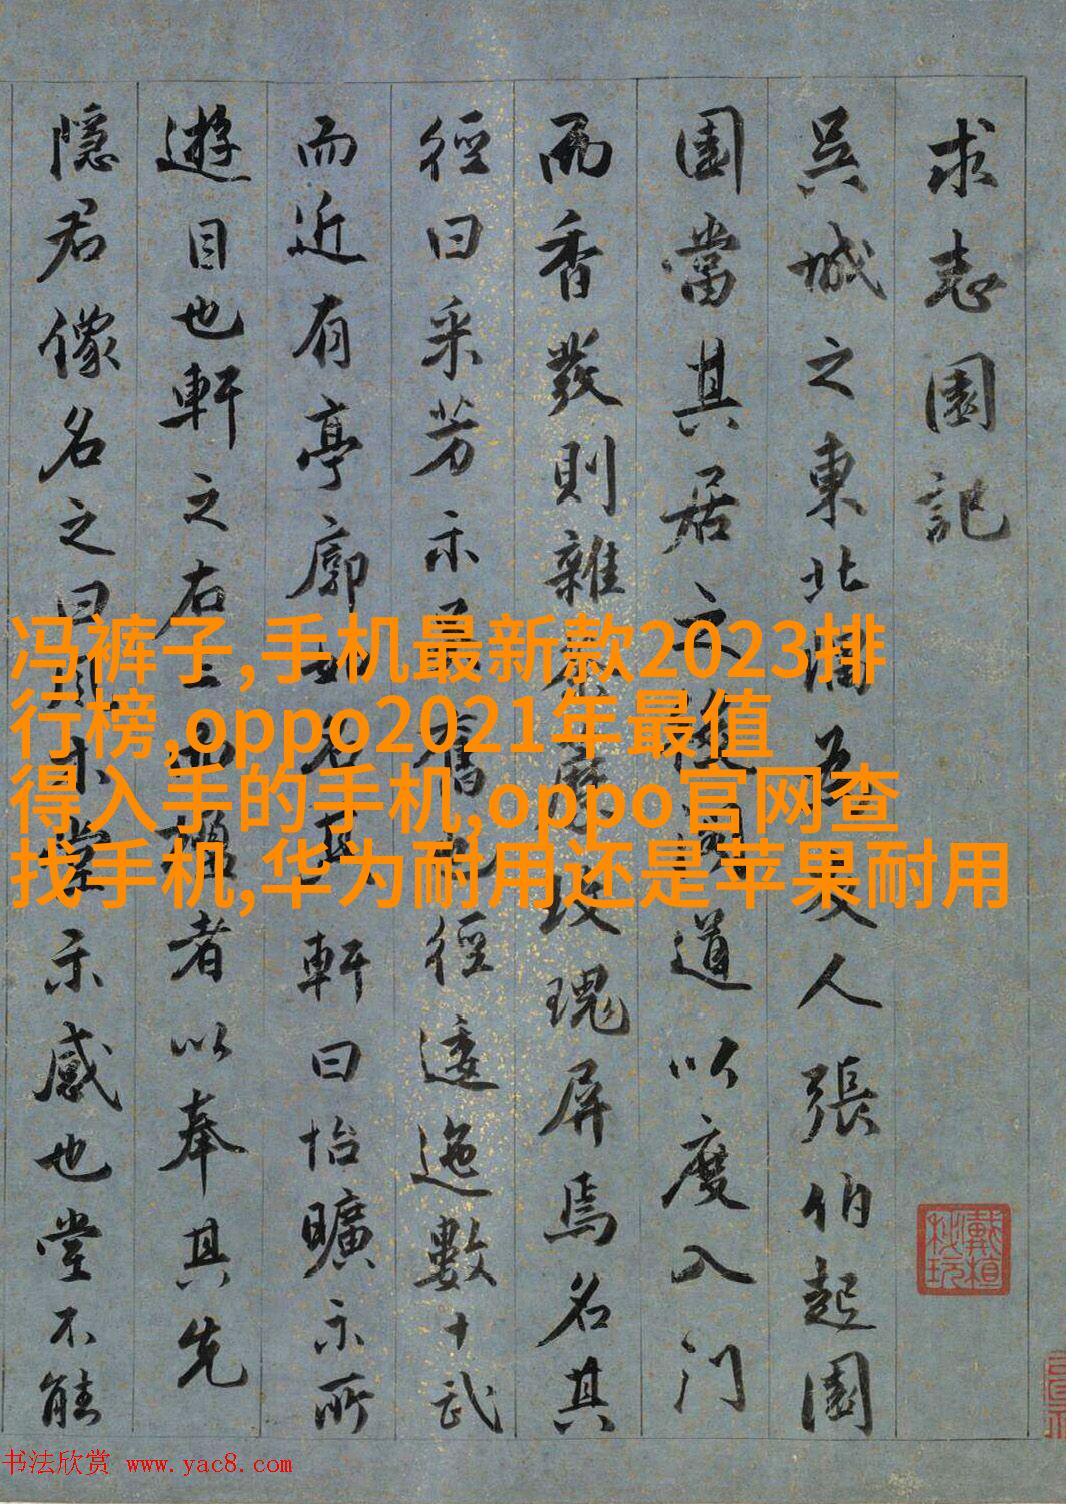 求志園記
吳城之東北隅為友人張伯起園
園當其居之後道以度入門
而香發則雜玫瑰屏焉名其
徑曰采芳示舊也徑逶迤數十武
而近有亭廓如名其軒曰怡曠示所
遊目也軒之右三而楹者以奉其先
隱君像名之曰風木堂示感也堂不能
冯裤子,手机最新款2023排
行榜,oppo2021年最值
得入手的手机,oppo官网查
找手机,华为耐用还是苹果耐用
书法欣赏 www.yac8.com